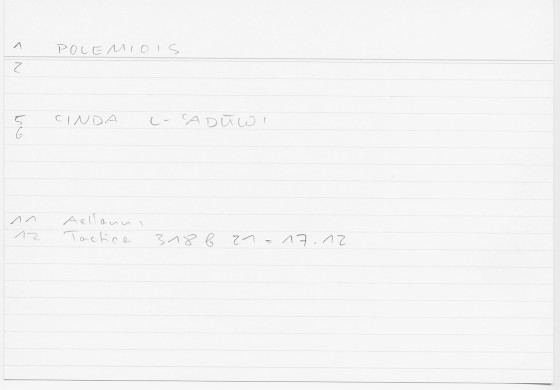 1 POLEMIOIS
2
5 ʿINDA L-ʿADŪWI
6
11 Aelianus
12 Tactica 318 B 21 = 17.12